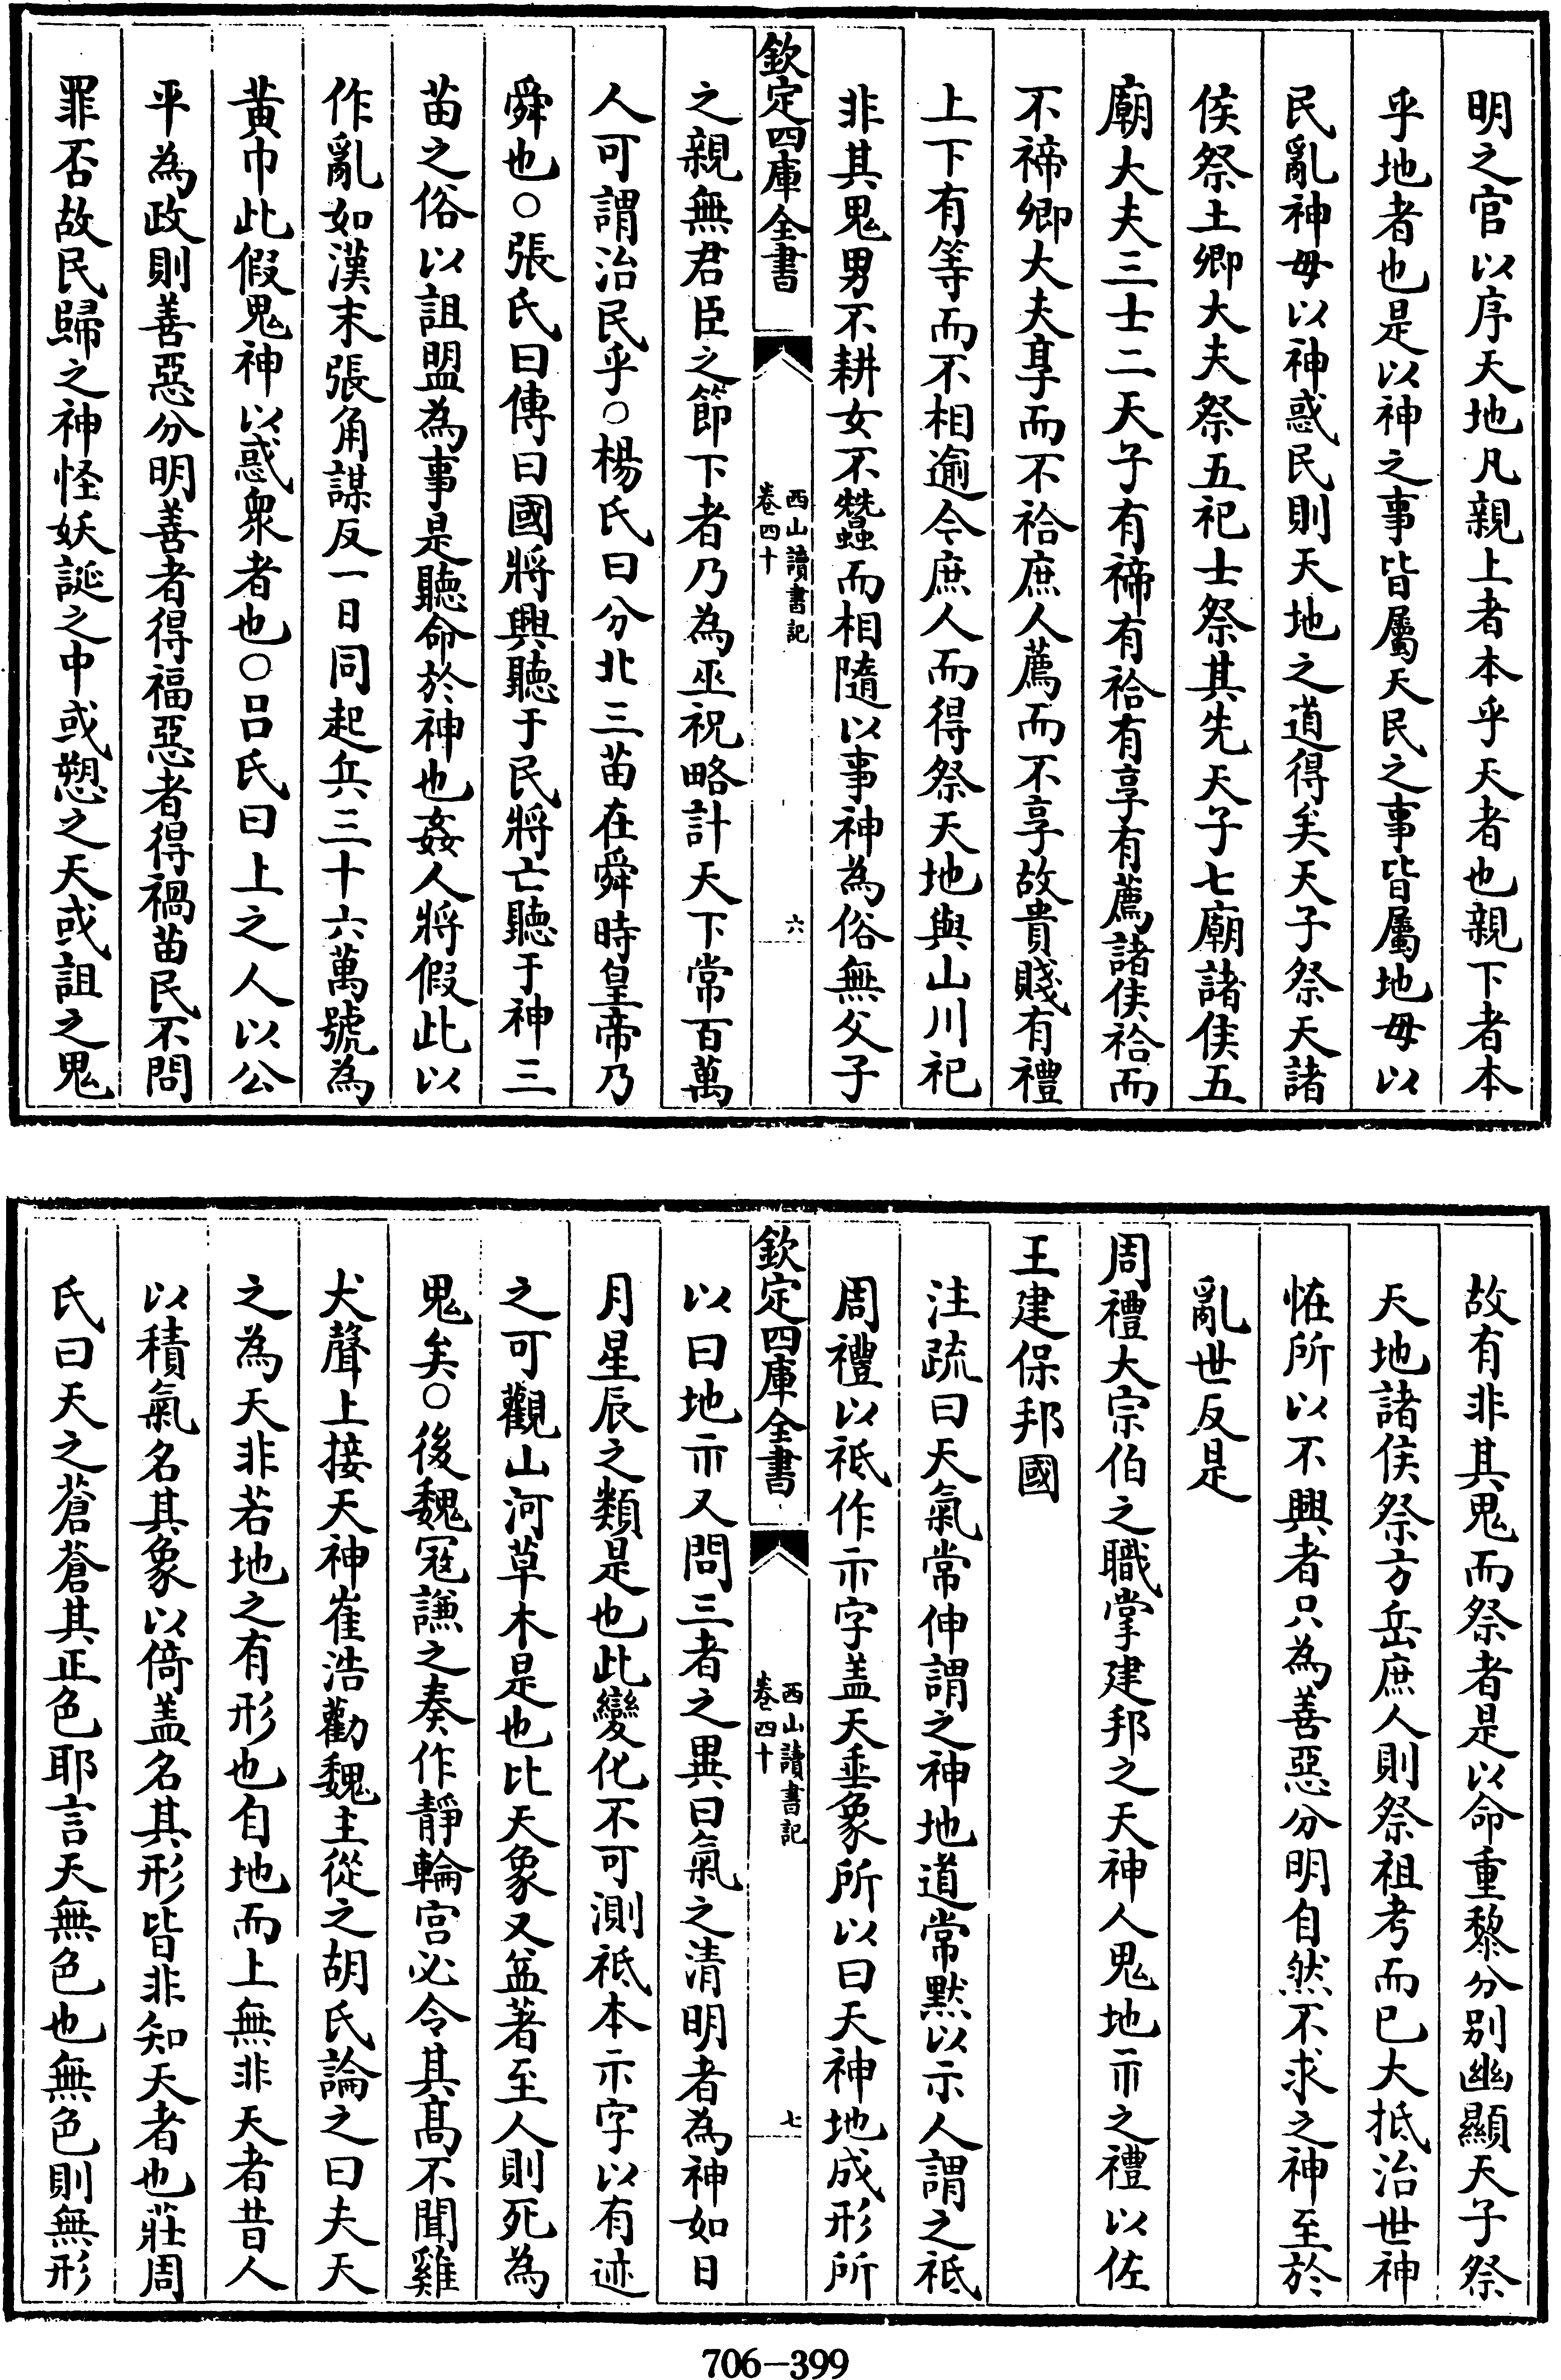 明之官以序天地凡親上者本乎天者也親下者本
乎地者也是以神之事皆屬天民之事皆屬地毋以
民亂神毋以神惑民則天地之道得矣天子祭天諸
侯祭土卿大夫祭五祀士祭其先天子七廟諸侯五
廟大夫三士二天子有禘有祫有享有薦諸侯祫而
不禘卿大夫享而不祫庶人薦而不享故貴賤有禮
上下有等而不相逾今庶人而得祭天地與山川祀
非其鬼男不耕女不蠶而相隨以事神為俗無父子
欽定四庫全書
西山讀書記
卷四十
六
之親無君臣之節下者乃為巫祝略計天下常百萬
人可謂治民乎○楊氏曰分北三苗在舜時皇帝乃
舜也○張氏曰傳曰國將興聽于民將亡聽于神三
苗之俗以詛盟為事是聽命於神也姦人將假此以
作亂如漢末張角謀反一日同起兵三十六萬號為
黄巾此假鬼神以惑衆者也○吕氏曰上之人以公
平為政則善惡分明善者得福惡者得禍苗民不問
罪否故民歸之神怪妖誕之中或愬之天或詛之鬼
故有非其鬼而祭者是以命重黎分别幽顯天子祭
天地諸侯祭方岳庶人則祭祖考而已大抵治世神
恠所以不興者只為善惡分明自然不求之神至於
亂世反是
周禮大宗伯之職掌建邦之天神人鬼地示之禮以佐
王建保邦國
注疏曰天氣常伸謂之神地道常黙以示人謂之祗
周禮以祗作示字盖天垂象所以曰天神地成形所
欽定四庫全書
西山讀書記
卷四十
七
以曰地示又問三者之異曰氣之清明者為神如日
月星辰之類是也此變化不可測祗本示字以有迹
之可觀山河草木是也比天象又盆著至人則死為
鬼矣○後魏冦謙之奏作靜輪宫必令其髙不聞雞
犬聲上接天神崔浩勸魏主從之胡氏論之曰夫天
之為天非若地之有形也自地而上無非天者昔人
以積氣名其象以倚盖名其形皆非知天者也莊周
氏曰天之蒼蒼其正色耶言天無色也無色則無形
706-399